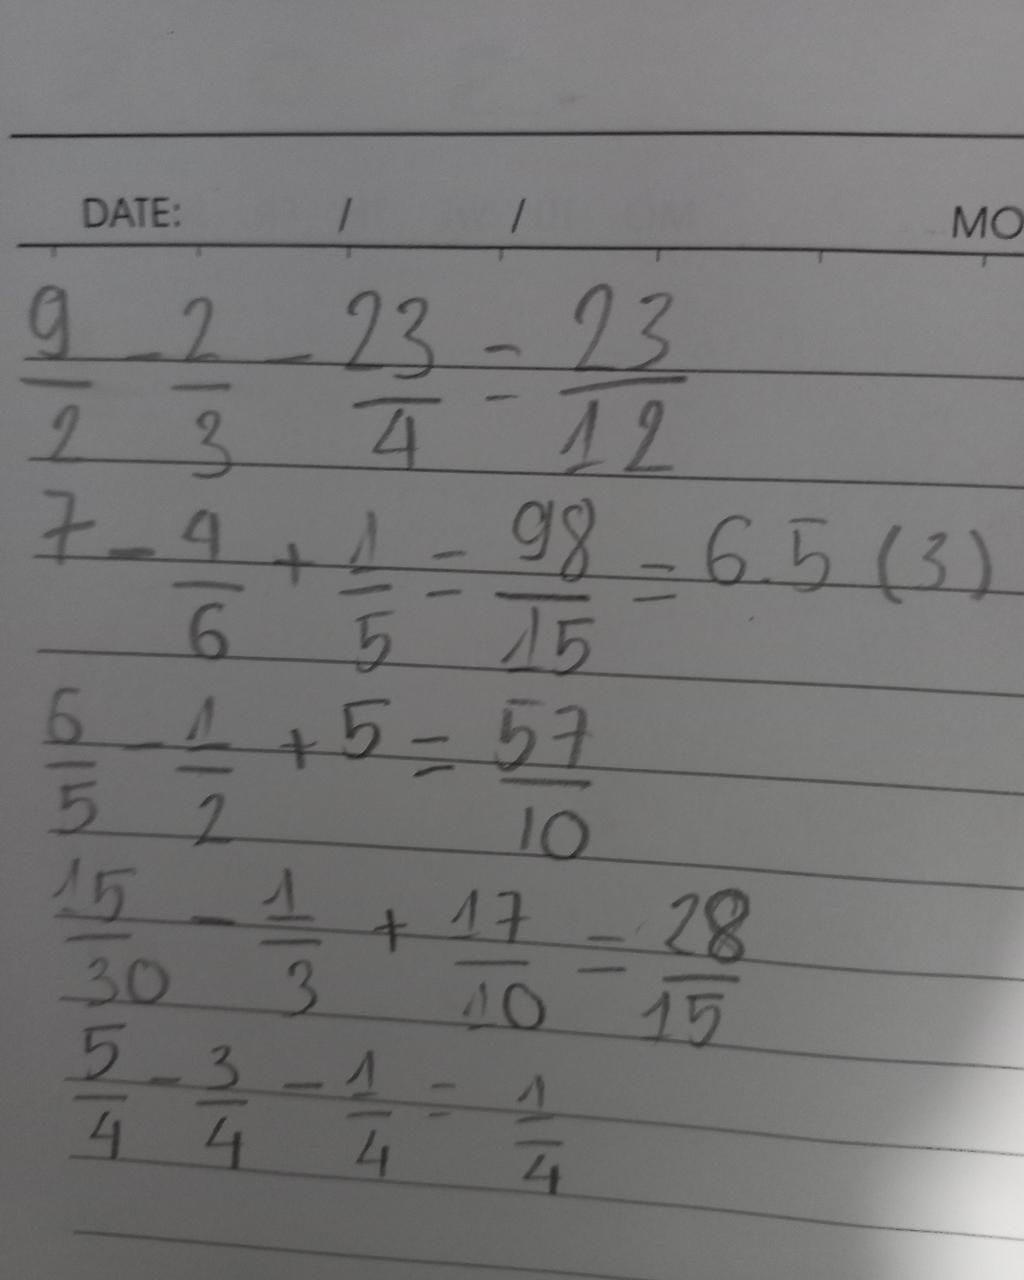 DATE: / / MO
9/2 - 2/3 - 23/4 = 23/12
7 - 4/6 + 1/5 = 98/15 = 6.5(3)
6/5 - 1/2 + 5 = 57/10
15/30 - 1/3 + 17/10 = 28/15
5/4 - 3/4 - 1/4 = 1/4